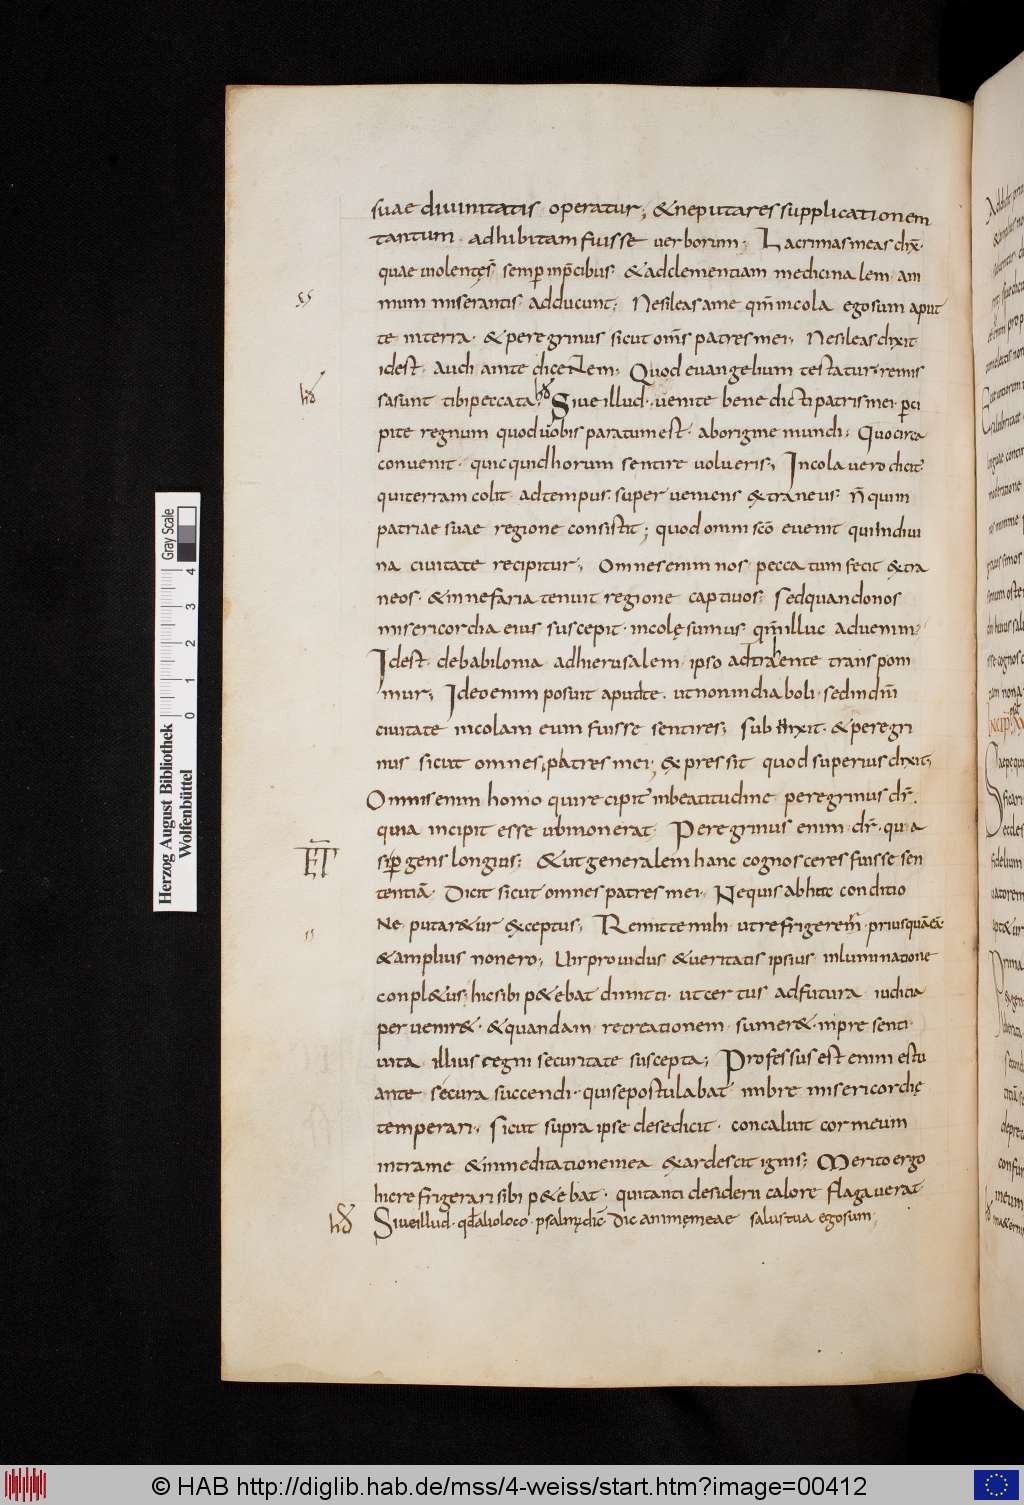 suae diuinitatis operatur; &neputares supplicationem
tantum· adhibitam fuisse uerborum; Lacrimas meas dix̄·
quae uiolentęs̄ semp̱ inp̄cibus· &adclementiam medicinalem· ani
mum miserantis· adducunt; Nesileas ame qm̄ incola egosum aput
te interra· &peregrinus sicut om̄s patres mei· Nesileas dixit
idest· audi amte dicentem; Quod euangelium testatur; remis
sasunt tibi peccata· hđ Siue illud· uenite benedicti patris mei· ꝑci
pite regnum quod uobis paratum est· aborigine mundi; Quocirca
conuenit· quicquid horum sentire uolueris; Incola uero dicit̄
qui terram colit· adtempus superueniens &traneus· n̄ qui in
patriae suae regione consistit; quod omni sc̄o euenit qui indiui
na ciuitate recipitur; Omnes enim nos peccatum fecit &tra
neos· &innefaria tenuit regione captiuos; sed quando nos
misericordia eius suscepit· incolę sumus qm̄ illuc aduenim̄;
Idest· debabilonia adhierusalem· ipso adtrahente transponi
mur; Ideo enim posuit apud te· ut non in diaboli· sed in dn̄i
ciuitate incolam eum fuisse sentires; subdixit· &peregri
nus sicut omnes patres mei; &pressit quod superius dixit;
Omnis enim homo qui recipit inbeatitudine peregrinus dr̄·
quia incipit esse ubi non erat· Peregrinus enim· dr̄· quia
sip̱ gens longius; &ut generalem hanc cognosceres fuisse sen
tentiā· Dicit sicut omnes patres mei· Nequis abhinc conditio
ne· putar&ur &ceptus; Remitte mihi· ut refrigerem̄· priusquā eā
&amplius non ero; Uir prouidus &ueritatis ipsius inluminatione
conpl&us; hic sibi p&ebat dimitti· ut certus adfutura iudicia
peruenir&· &quandam recreationem sumer& inpresenti
uita illius regni securitate suscepta; Professus est enim estu
ante se cura succendi· qui se postulabat imbre misericordię
temperari· Sicut supra ipse de se dicit· concaluit cor meum
intra me &inmeditatione mea &ardescit ignis; Merito ergo
hic refrigerari sibi p&ebat· qui tanti desiderii calore flagauerat
hđ Siue illud· qđ alio loco· psalmꝰ dic̄· Dic animę meae salus tua ego sum;
Herzog August Bibliothek
Wolfenbüttel
0 1 2 3 4
Gray Scale
© HAB http://diglib.hab.de/mss/4-weiss/start.htm?image=00412